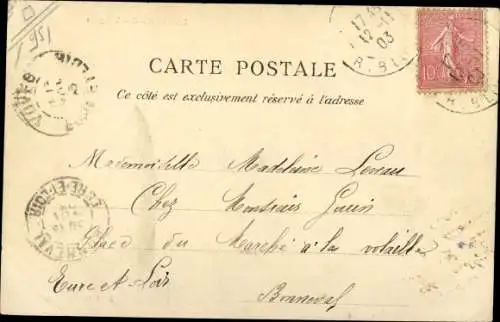 951
17 15
12-11
03
R. BL
10
CARTE POSTALE
Ce côté est exclusivement réservé à l'adresse
Mademoiselle Madeleine
Chez Monsieur Guérin
Place du Marché à la volaille
Eure et Loir
Bonneval
EURE-ET-LOIR